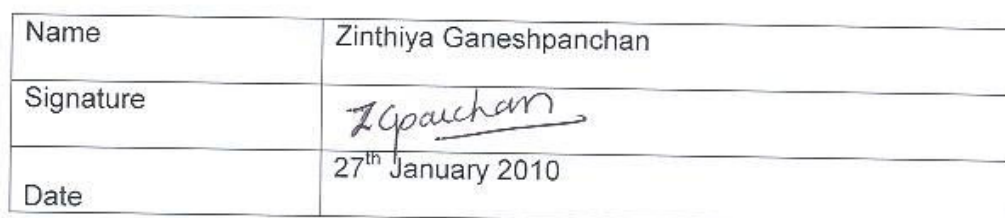 Name Zinthiya Ganeshpanchan
Signature ZGpanchan
27th January 2010
Date